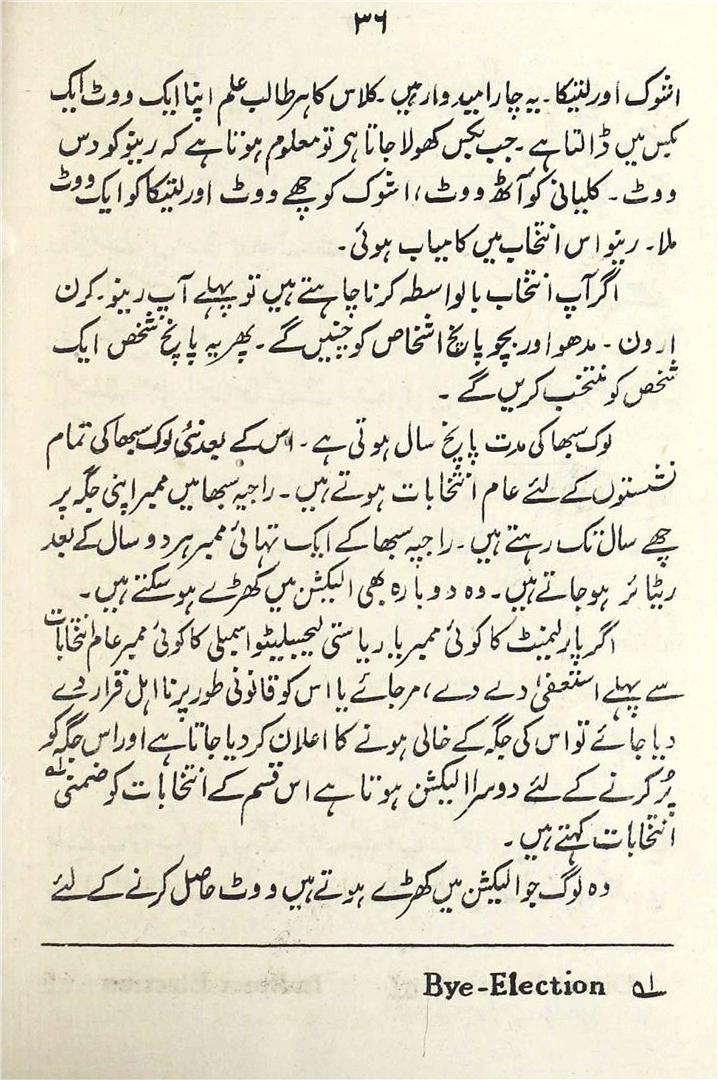 ۳۶
اشوک اور لتیکا۔ یہ چار امیدوار ہیں۔ کلاس کا ہر طالب علم اپنا ایک ووٹ ایک
بکس میں ڈالتا ہے۔ جب بکس کھولا جاتا ہی تو معلوم ہوتا ہے کہ رینو کو دس
ووٹ۔ کلیانی کو آٹھ ووٹ، اشوک کو چھے ووٹ اور لتیکا کو ایک ووٹ
ملا۔ رینو اس انتخاب میں کامیاب ہوئی۔
اگر آپ انتخاب بالواسطہ کرنا چاہتے ہیں تو پہلے آپ رینو۔ کرن
ارون۔ مدھو اور بچو پانچ اشخاص کو چنیں گے۔ پھر یہ پانچ شخص ایک
شخص کو منتخب کریں گے۔
لوک سبھا کی مدت پانچ سال ہوتی ہے۔ اس کے بعد نئی لوک سبھا کی تمام
نشستوں کے لئے عام انتخابات ہوتے ہیں۔ راجیہ سبھا میں ممبر اپنی جگہ پر
چھے سال تک رہتے ہیں۔ راجیہ سبھا کے ایک تہائی ممبر ہر دو سال کے بعد
ریٹائر ہو جاتے ہیں۔ وہ دوبارہ بھی الیکشن میں کھڑے ہو سکتے ہیں۔
اگر پارلیمنٹ کا کوئی ممبر یا ریاستی لیجیسلیٹو اسمبلی کا کوئی ممبر عام انتخابات
سے پہلے استعفیٰ دے دے، مر جائے یا اس کو قانونی طور پر نااہل قرار دے
دیا جائے تو اس کی جگہ کے خالی ہونے کا اعلان کر دیا جاتا ہے اور اس جگہ کو
پُر کرنے کے لئے دوسرا الیکشن ہوتا ہے اس قسم کے انتخابات کو ضمنی لہ
انتخابات کہتے ہیں۔
وہ لوگ جو الیکشن میں کھڑے ہوتے ہیں ووٹ حاصل کرنے کے لئے
لہ Bye-Election